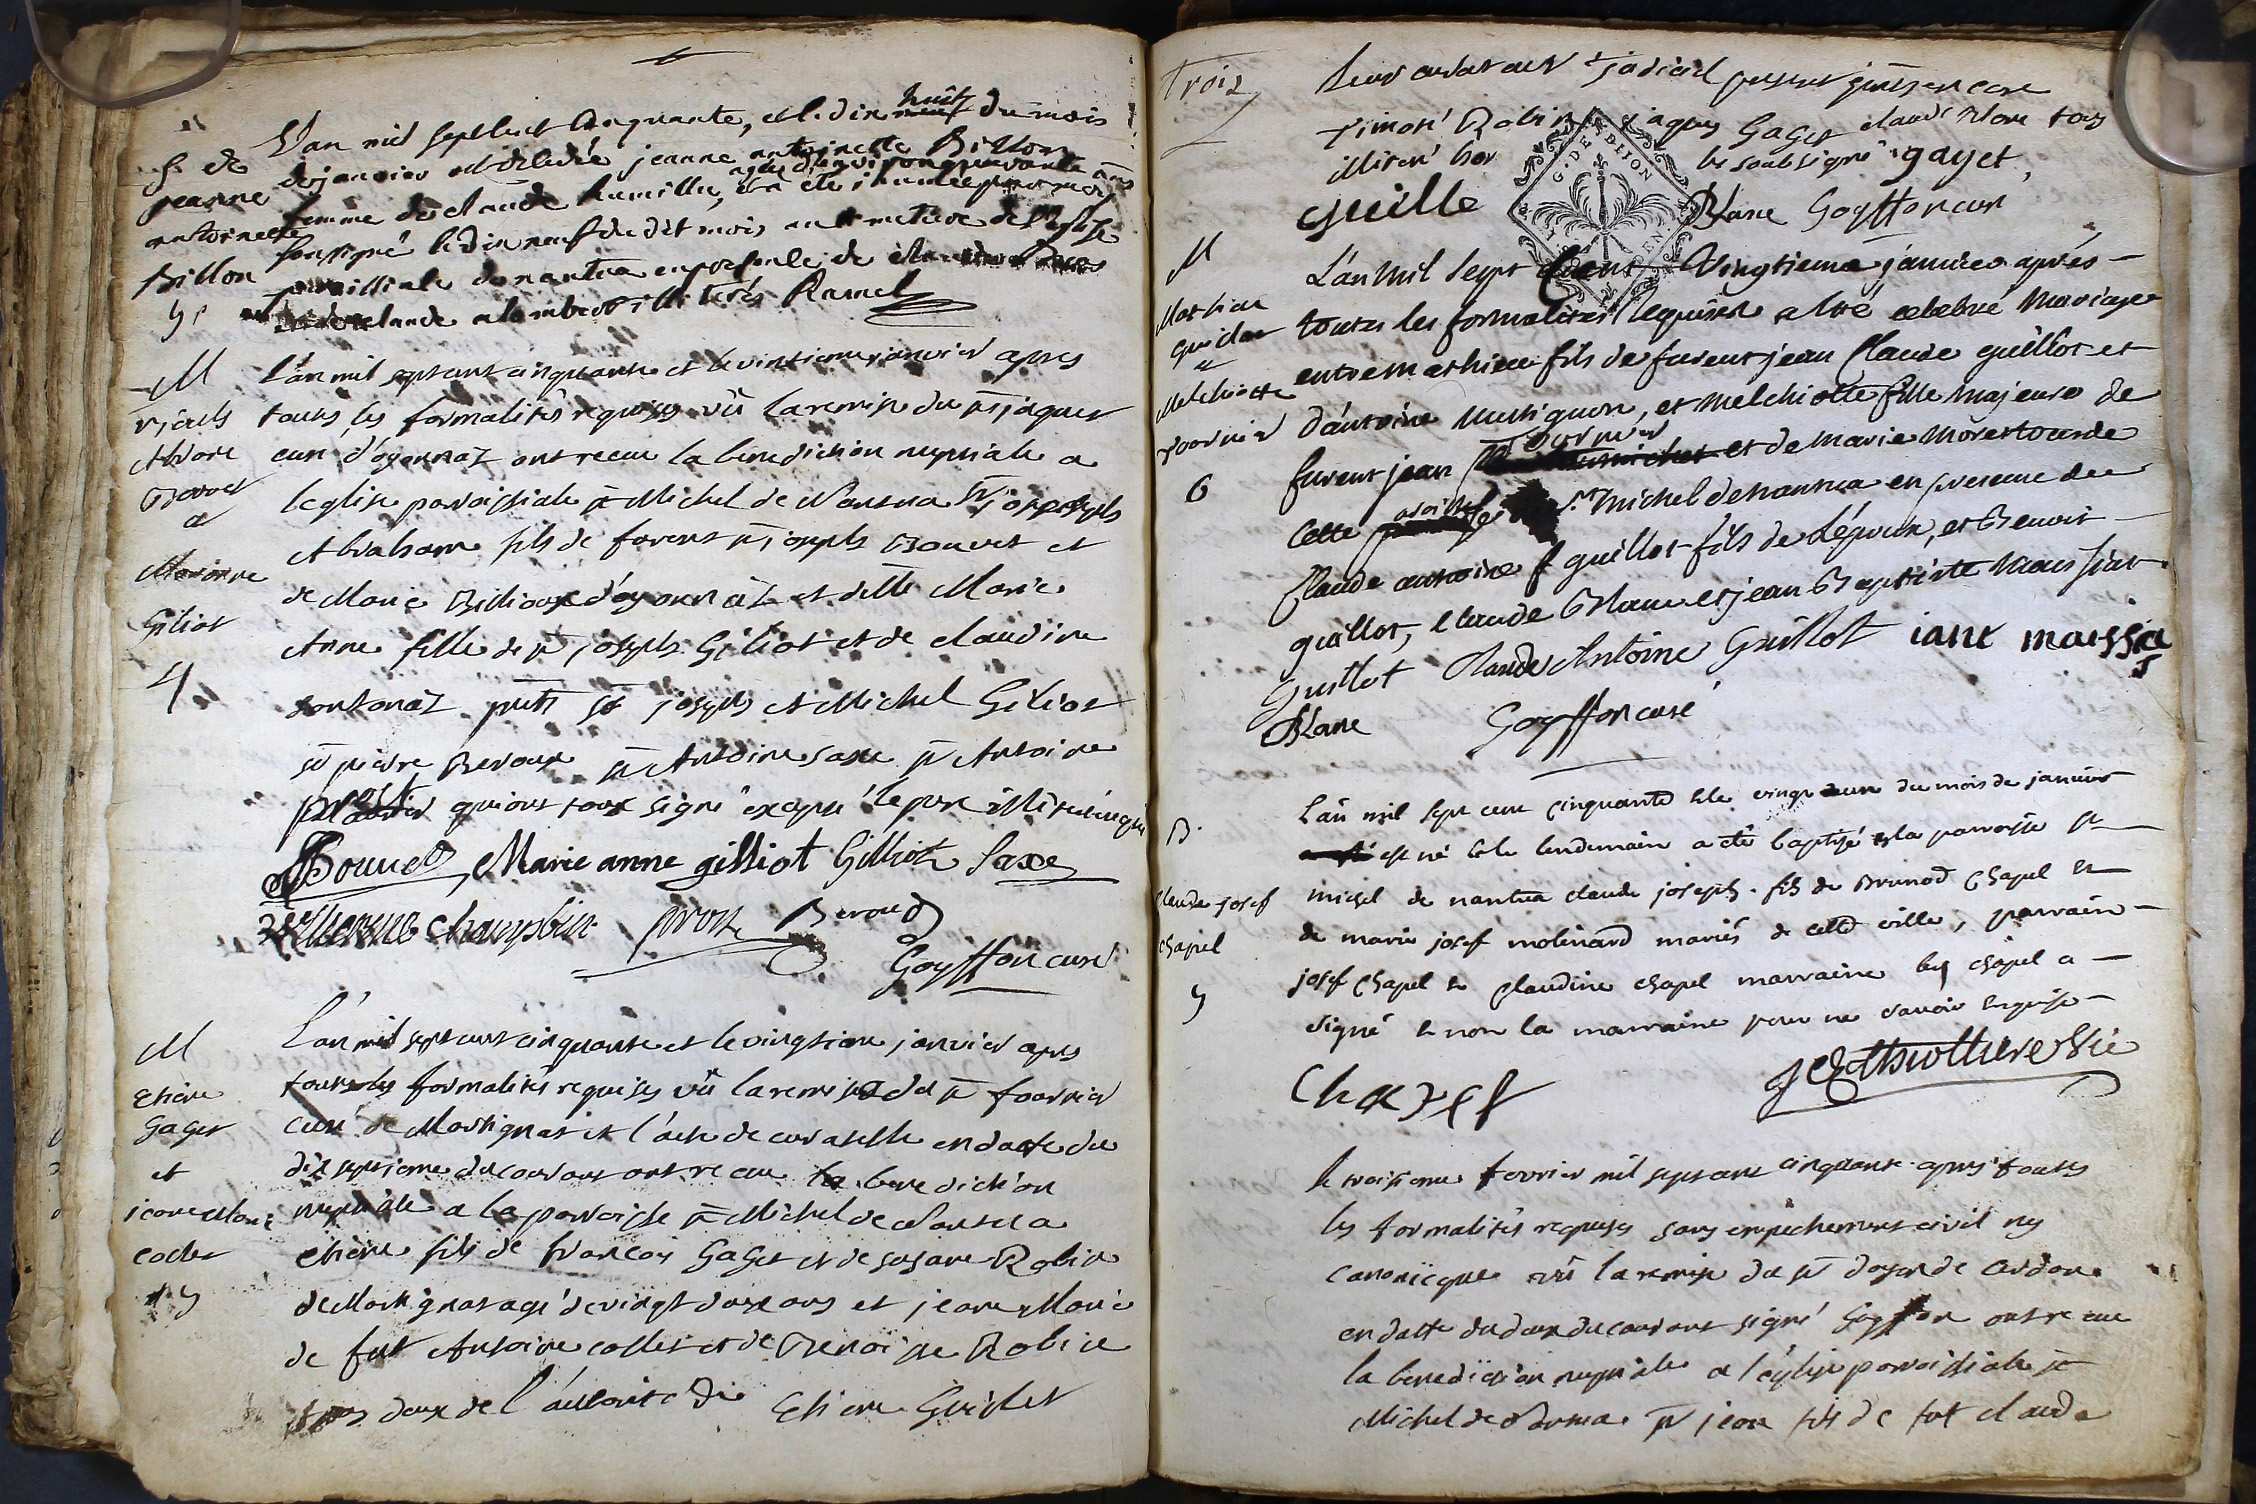 S. de
jeanne
antoinette
Billon
L'an mil sept cent cinquante, et le dix huit du mois
de janvier est decedée jeanne antoinette Billon
agée d'environ quarante ans
femme de claude humillu, et a eté inhumée par moi
soussigné le dix neuf du dit mois au cimetiere de l'eglise
paroissiale de nantua en presence de
claude alombert illiterés Ramel
M
Abram
Bouvet
et
Marianne
Giliot
4
L'an mil sept cent cinquante et le vintieme janvier apres
toutes les formalités requises vû la remise du sr jaques
curé d'oyonnaz ont receu la benediction nuptiale a
l'eglise paroissiale st Michel de Nantua sr joseph
Abraham fils de furent sr joseph Bouvet et
de Marie Billioux d'oyonnaz et dlle Marie
Anne fille de sr joseph Giliot et de claudine
fontanaz pnts sr joseph et Michel Giliot
sr pierre Beroux sr Antoine Saxe sr Antoine
prost qui ont tous signé excepté le pere illiteré enquis
JBouvet Marie anne gilliot Gilliot Saxe
prost Beroud
Goyffon curé
M
Etiene
Gaget
et
jeane Marie
collet
5
L'an mil sept cent cinquante et le vingtieme janvier apres
toutes les formalités requises vû la remise du sr fournier
curé de Martignat et l'acte de curatelle en datte du
dix septieme du courant ont receu la benediction
nuptiale a la paroisse st Michel de Nantua
Etiene fils de françois Gaget et de susane Robin
de Martignat agé de vingt deux ans et jeane Marie
de fut Antoine collet et de Benoite Robin
tous deux de l'autorité de Etiene Guichet
Trois
leur curateur judiciel present
timoté Robin jaques Gaget claude Blanc tous
les soubsigné gayet,
guille
G. DE DIJON
Blanc Goyffon curé
M
Mathieu
guillot
et
Melchiotte
fournier
6
L'an Mil sept Cent Vingtieme janvier après
toutes les formalitées requises a été celebré Mariage
entre mathieu fils de furent jean Claude guillot et
d'antoine Musignon, et Melchiotte fille Majeure de
furent jean fournier et de Marie Moret tous de
cette paroisse St. Michel de nantua en presence de
Claude antoine guillot fils de l'époux, et Benoit
guillot, Claude Blanc et jean Baptiste Maissiat
Guillot Claude Antoine Guillot iant maissia
Blanc Goyffon curé
B.
Claude Josef
Chapel
L'an mil sept cent cinquante et le vingt et un du mois de janvier
est né et le lendemain a été baptisé à la paroisse st
michel de nantua claude joseph fils de Brunod Chapel et
de marie josef molinard mariés de cette ville, parrain
josef Chapel et Claudine chapel marraine led chapel a
signé et non la marraine pour ne savoir enquise
Chapel
le troisieme fevrier mil sept cent cinquante apres toutes
les formalités requises sans empechement civil ny
canonicque vû la remise du sr doyen de Cerdon
en datte du deux du courant signé Goyffon ont receu
la benediction nuptiale a l'eglise paroissiale st
Michel de Nantua sr jean fils de fut claude